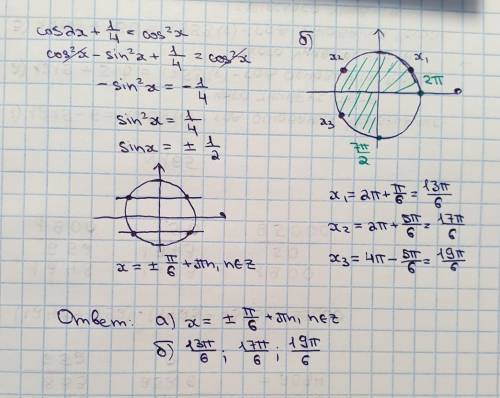 cos2x + 1/4 = cos²x
cos²x − sin²x + 1/4 = cos²x
− sin²x = − 1/4
sin²x = 1/4
sinx = ± 1/2
x = ± π/6 + πn, n∈z
б)
x₂ x₁
2π
x₃
7π/2
x₁ = 2π + π/6 = 13π/6
x₂ = 2π + 5π/6 = 17π/6
x₃ = 4π − 5π/6 = 19π/6
Ответ: а) x = ± π/6 + πn, n∈z
б) 13π/6 ; 17π/6 ; 19π/6